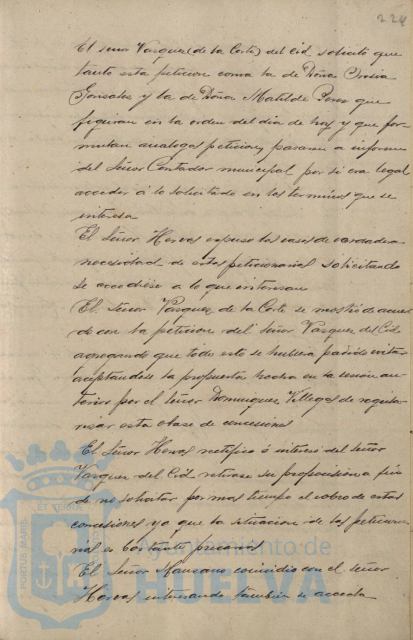 224
El señor Vazquez (de la Corte) del Cid solicitó que
tanto esta peticion como la de Doña
Gonzalez y la de Doña Matilde Perez que
figuran en la orden del dia de hoy y que for-
mulan analogas peticiones, pasaran a informe
del Señor Contador municipal por si era legal
acceder á lo solicitado en los terminos que se
interesa
El Señor Hervas expuso los casos de verdadera
necesidad de estas peticionarias solicitando
se accediese a lo que interesan
El Señor Vazquez de la Corte se mostró de acuer-
do con la peticion del Señor Vazquez del Cid
agregando que todo esto se hubiera podido evitar
aceptandose la propuesta hecha en la sesión an-
terior por el Señor Dominguez Villegas de
esta clase de concesiones
El Señor Hervas rectificó é interesó del señor
Vazquez del Cid retirase su proposición a fin
de no solicitar por mas tiempo el cobro de estas
concesiones ya que la situacion de las peticiona-
rias es bastante precaria
El Señor Manzano coincidió con el señor
Hervas interesando tambien se acceda
ET TERRAE
PORTUS MARIS
Ayuntamiento de
HUELVA